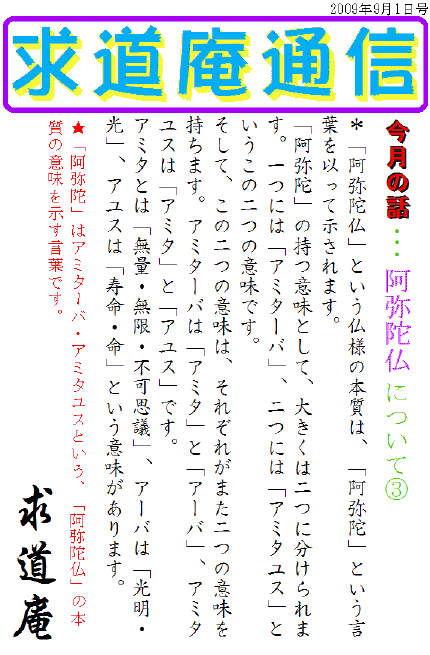 2009年9月1日号
求道庵通信
今月の話…阿弥陀仏について③
＊「阿弥陀仏」という仏様の本質は、「阿弥陀」という言
葉を以って示されます。
「阿弥陀」の持つ意味として、大きくは二つに分けられま
す。一つには「アミターバ」、二つには「アミタユス」と
いうこの二つの意味です。
そして、この二つの意味は、それぞれがまた二つの意味を
持ちます。アミターバは「アミタ」と「アーバ」、アミタ
ユスは「アミタ」と「アユス」です。
アミタとは「無量・無限・不可思議」、アーバは「光明・
光」、アユスは「寿命・命」という意味があります。
★「阿弥陀」はアミターバ・アミタユスという、「阿弥陀仏」の本
質の意味を示す言葉です。
求道庵